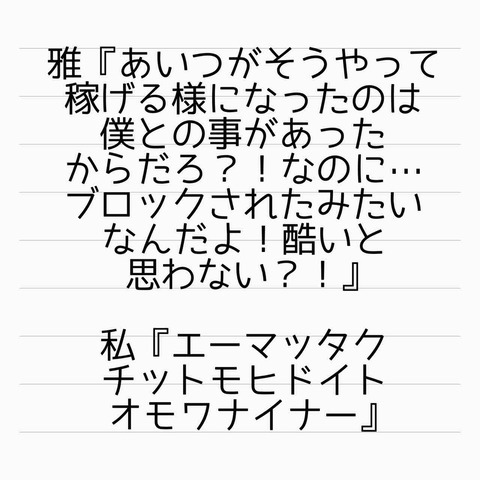 雅『あいつがそうやって
稼げる様になったのは
僕との事があった
からだろ？！なのに…
ブロックされたみたい
なんだよ！酷いと
思わない？！』
私『エーマッタク
チットモヒドイト
オモワナイナー』